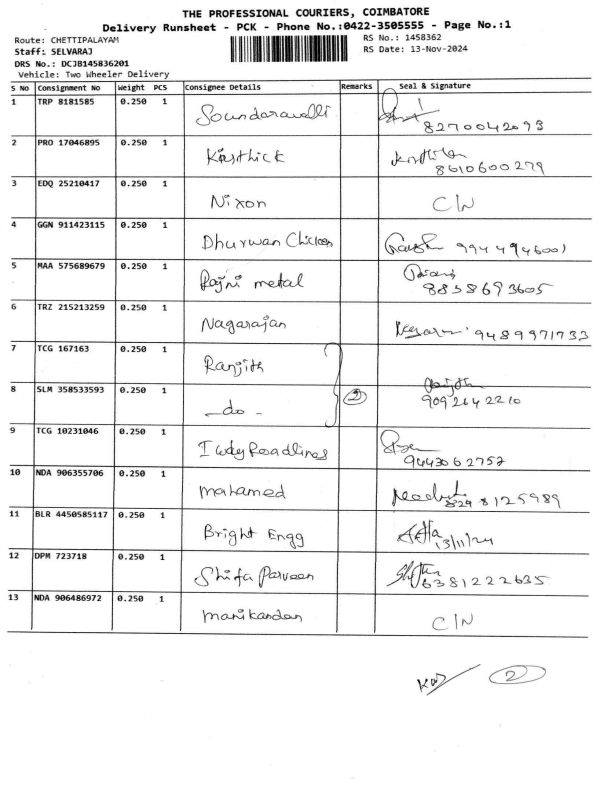 THE PROFESSIONAL COURIERS, COIMBATORE
Delivery Runsheet - PCK - Phone No.:0422-3505555 - Page No.:1
Route: CHETTIPALAYAM RS No.: 1458362
Staff: SELVARAJ RS Date: 13-Nov-2024
DRS No.: DCJB145836201
Vehicle: Two Wheeler Delivery
S No Consignment No Weight PCS Consignee Details Remarks Seal & Signature
1 TRP 8181585 0.250 1 Soundaravalli
8270042093
2 PRO 17046895 0.250 1 Karthick
8610600279
3 EDQ 25210417 0.250 1 Nixon C/N
4 GGN 911423115 0.250 1 Dhurwan Chicken 9944946001
5 MAA 575689679 0.250 1 Rajni metal
8838693605
6 TRZ 215213259 0.250 1 Nagarajan 9489971733
7 TCG 167163 0.250 1 Ranjith
8 SLM 358533593 0.250 1 -do- 2 9092642210
9 TCG 10231046 0.250 1 Roadlines
9443062752
10 NDA 906355706 0.250 1 mahamed 8298125989
11 BLR 4450585117 0.250 1 Bright Engg
13/11/24
12 DPM 723718 0.250 1 Shifa Parveen 6381222635
13 NDA 906486972 0.250 1 manikandan C/N
2